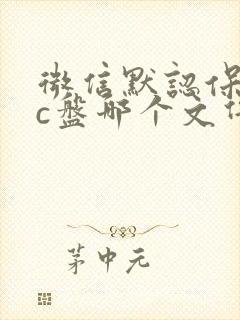 微信默認保
c盤那个文
茅中元